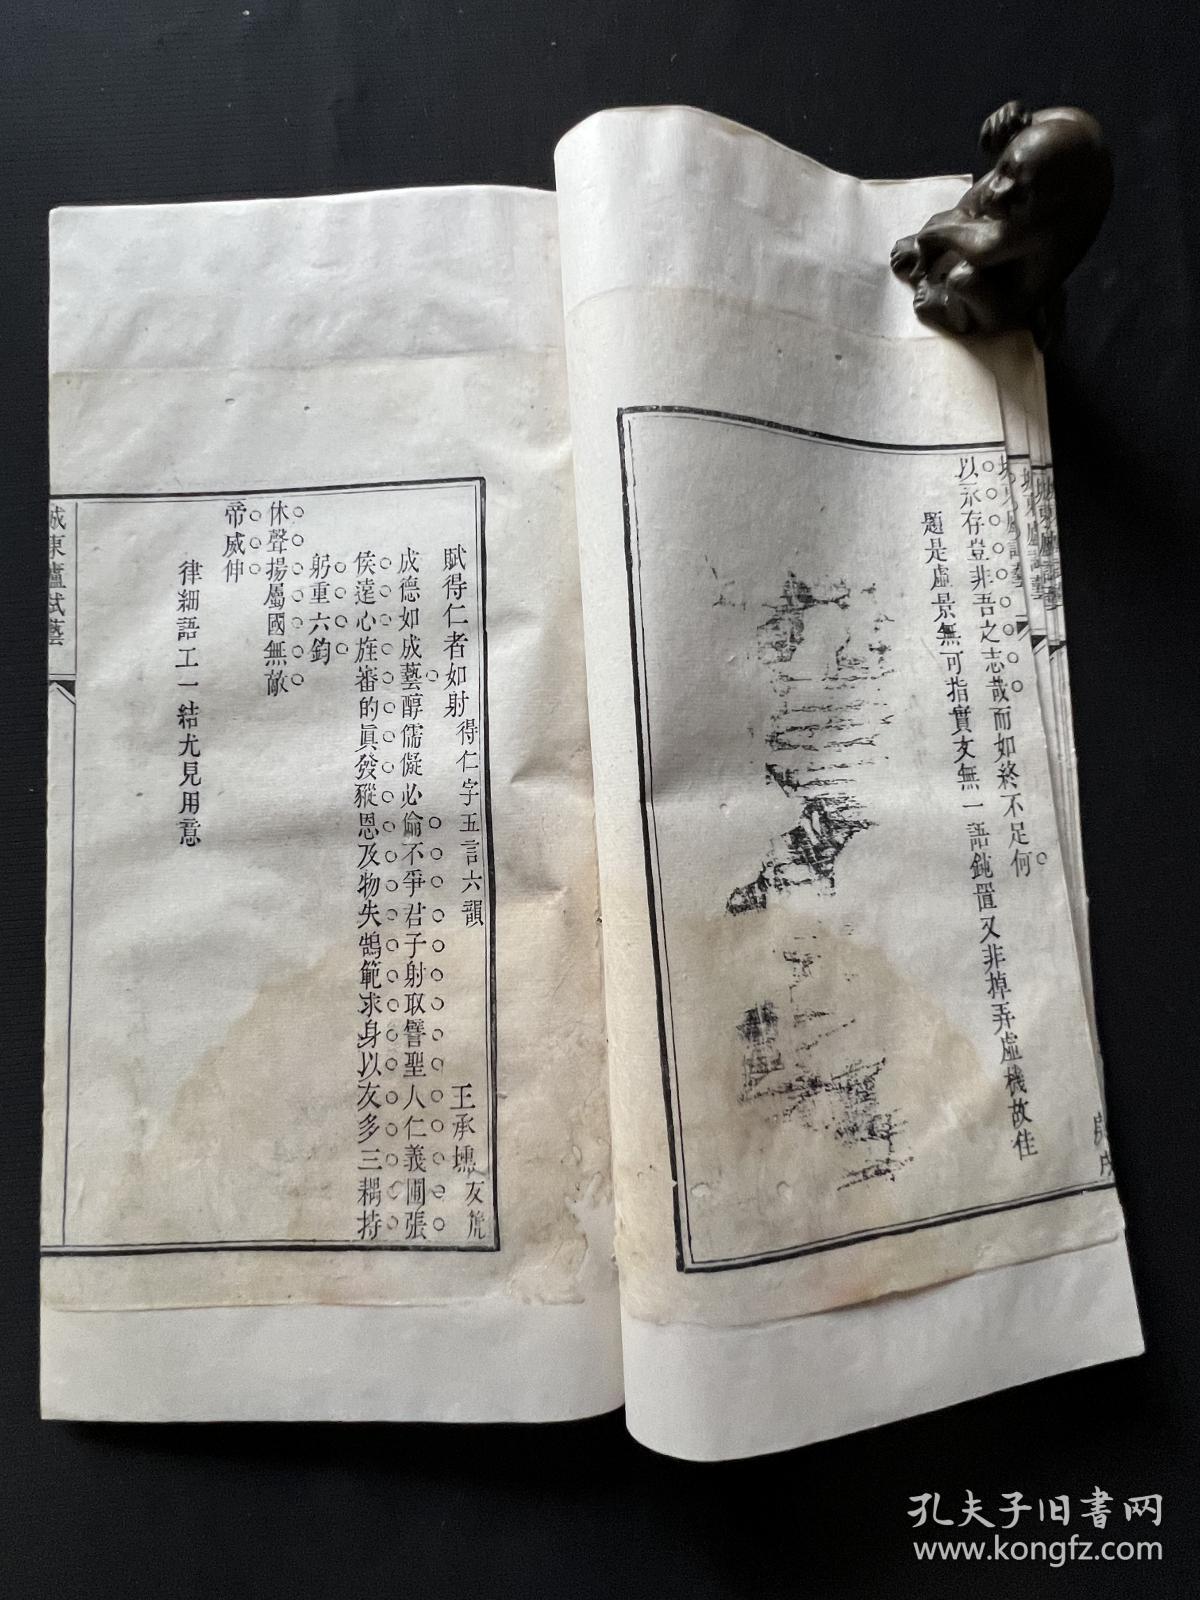 以永存豈非吾之志哉而如終不足何
題是虛景無可指實文無一語鈍置又非掉弄虛機故佳
賦得仁者如射 得仁字五言六韻 王承壎 友箎
成德如成藝醇儒儗必倫不爭君子射取譬聖人仁義圃張
侯達心旌審的眞發猣恩及物失鵠範求身以友多三耦持
躬重六鈞
休聲揚屬國無敵
帝威伸
律細語工一結尤見用意
城東廬試藝
孔夫子旧书网
www.kongfz.com